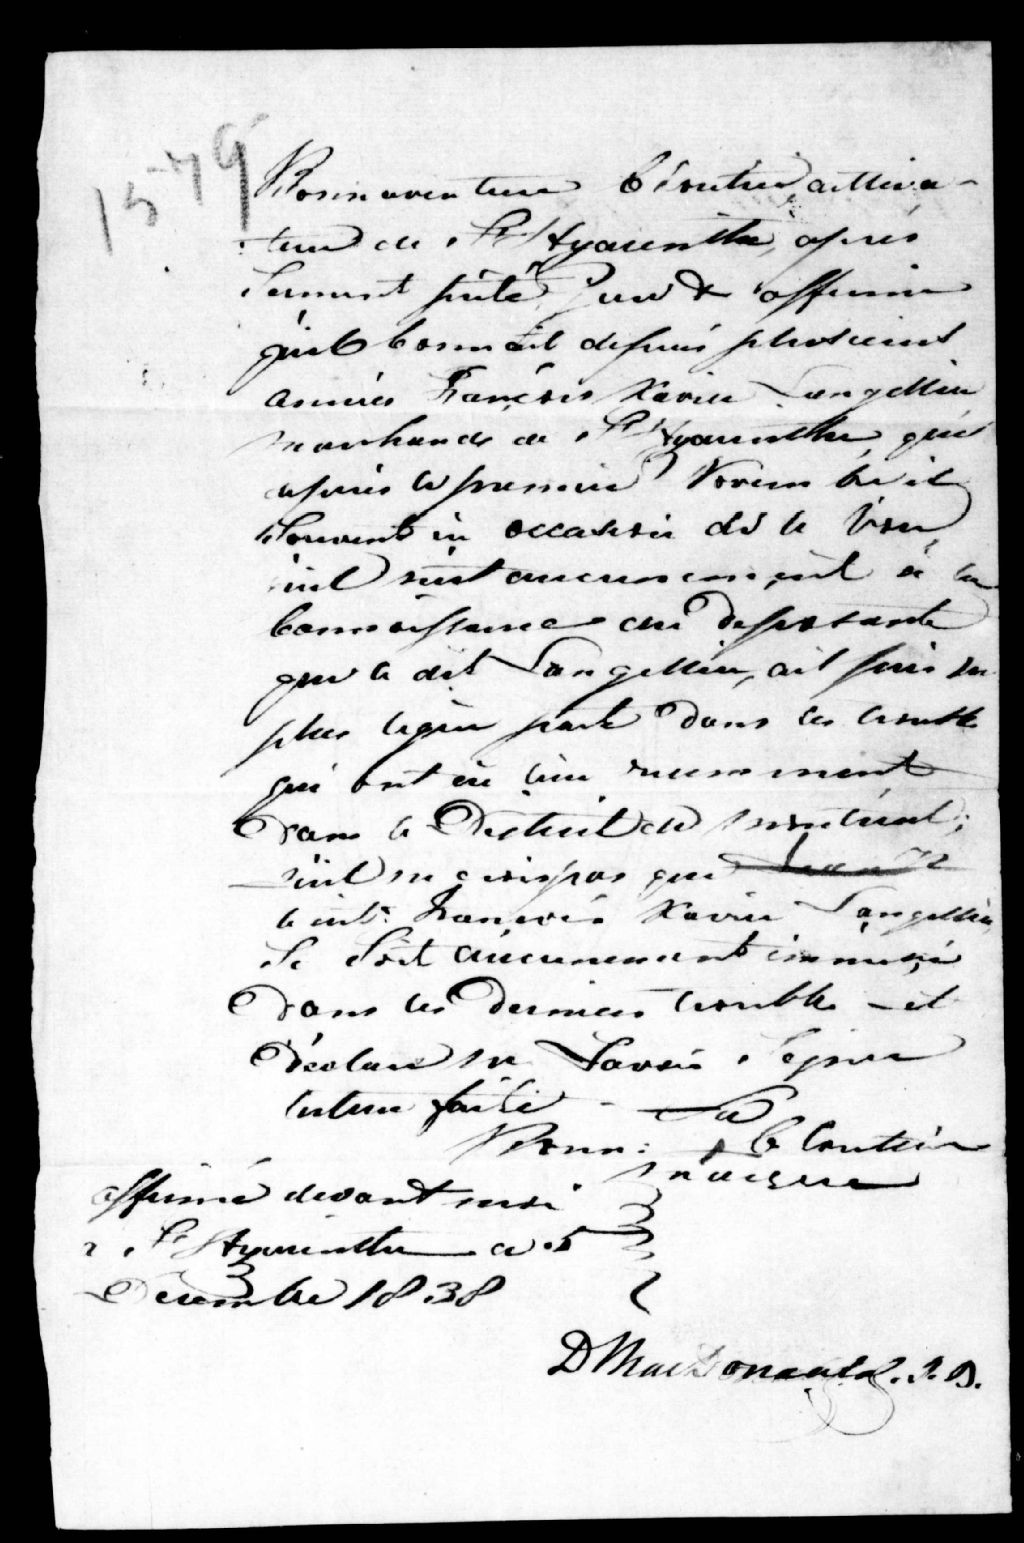 1579
Bonnaventure Cloutier cultiva-
teur de St Hyacinthe, après
Serment prété, Jure & affirme
qu'il Connait depuis plusieurs
années François Xavier Langellier
marchand de St Hyacinthe, que
depuis le premier Novembre il
Souvent eu occasion de le voir
qu'il n'est aucunement à la
Connoissance du Deposante
que le dit Langellier, ait pris la
plus legère parte Dans les trouble
qui ont eu lieu recemment
Dans le District de Montréal,
qu'il ne crois pas que
le int. François Xavier Langellier
Se Soit aucunement immiscé
Dans les derniers trouble – et
Déclare ne Savoir Signer
lecture faite – Sa
Bonn: Cloutier
marque
affirmé devant moi
a St Hyacinthe ce 5
Decembre 1838
D MacDonald. J. P.